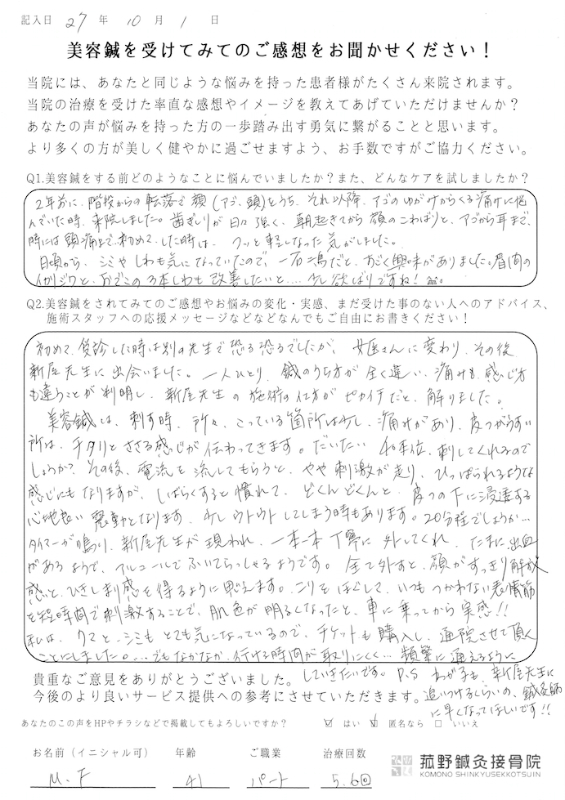 記入日 27 年 10 月 1 日
美容鍼を受けてみてのご感想をお聞かせください！
当院には、あなたと同じような悩みを持った患者様がたくさん来院されます。
当院の治療を受けた率直な感想やイメージを教えてあげていただけませんか？
あなたの声が悩みを持った方の一歩踏み出す勇気に繋がることと思います。
より多くの方が美しく健やかに過ごせますよう、お手数ですがご協力ください。
Q1.美容鍼をする前どのようなことに悩んでいましたか？また、どんなケアを試しましたか？
2年前に、階段からの転落で顔(アゴ、頭)をうち、それ以降、アゴのゆがみからくる痛みに悩
んでいた時、来院しました。歯ぎしりが日々強く、朝起きてから顔のこわばりと、アゴから耳まで、
時には頭痛まで。初めてした時は、クッと楽になった気がしました。
日頃から、シミやしわも気になっていたので、一石二鳥だと、すごく興味がありました。眉間の
イカリジワと、おでこの3本しわも改善したいと…少し欲ばりですね！
Q2.美容鍼をされてみてのご感想やお悩みの変化・実感、まだ受けた事のない人へのアドバイス、
施術スタッフへの応援メッセージなどなどなんでもご自由にお書きください！
初めて受診した時は別の先生で恐る恐るでしたが、女医さんに変わり、その後、
新居先生に出会いました。一人ひとり、鍼のうち方が全く違い、痛みも感じ方
も違うことが判明し、新居先生の施術の仕方がピカイチだと、解りました。
美容鍼は、刺す時、所々、こっている箇所は少し、痛みがあり、皮ふがうすい
所は、チクリとささる感じが伝わってきます。だいたい 本位、刺してくれるので
しょうか？その後、電流を流してもらうと、やや刺激が走り、ひっぱられるような
感じにもなりますが、しばらくすると慣れて、どくんどくんと、皮フの下に浸透する
心地良い震動となります。少しウトウトしてしまう時もあります。20分程でしょうか…
タイマーが鳴り、新居先生が現われ、一本一本丁寧に外してくれ、たまに出血
があるようで、アルコールでふいてらっしゃるようです。全て外すと、顔がすっきり解放
感と、ひきしまり感を得るように思えます。こりをほぐして、いつもつかわない表情筋
を短時間で刺激することで、肌色が明るくなったなと、車に乗ってから実感！！
私は、クマと、シミもとても気になっているので、チケットも購入し、通院させて頂く
ことにしました。…でもなかなか、行ける時間が取りにくく…頻繁に通えるように
していきたいです。P.S わが子も、新居先生に
追いつけるくらいの、鍼灸師
に早くなってほしいです！！
貴重なご意見をありがとうございました。
今後のより良いサービス提供への参考にさせていただきます。
あなたのこの声をHPやチラシなどで掲載してもよろしいですか？ ☑ はい ☑ 匿名なら □ いいえ
お名前（イニシャル可） 年齢 ご職業 治療回数
M.F 41 パート 5.6回
菰野鍼灸接骨院
KOMONO SHINKYUSEKKOTSUIN